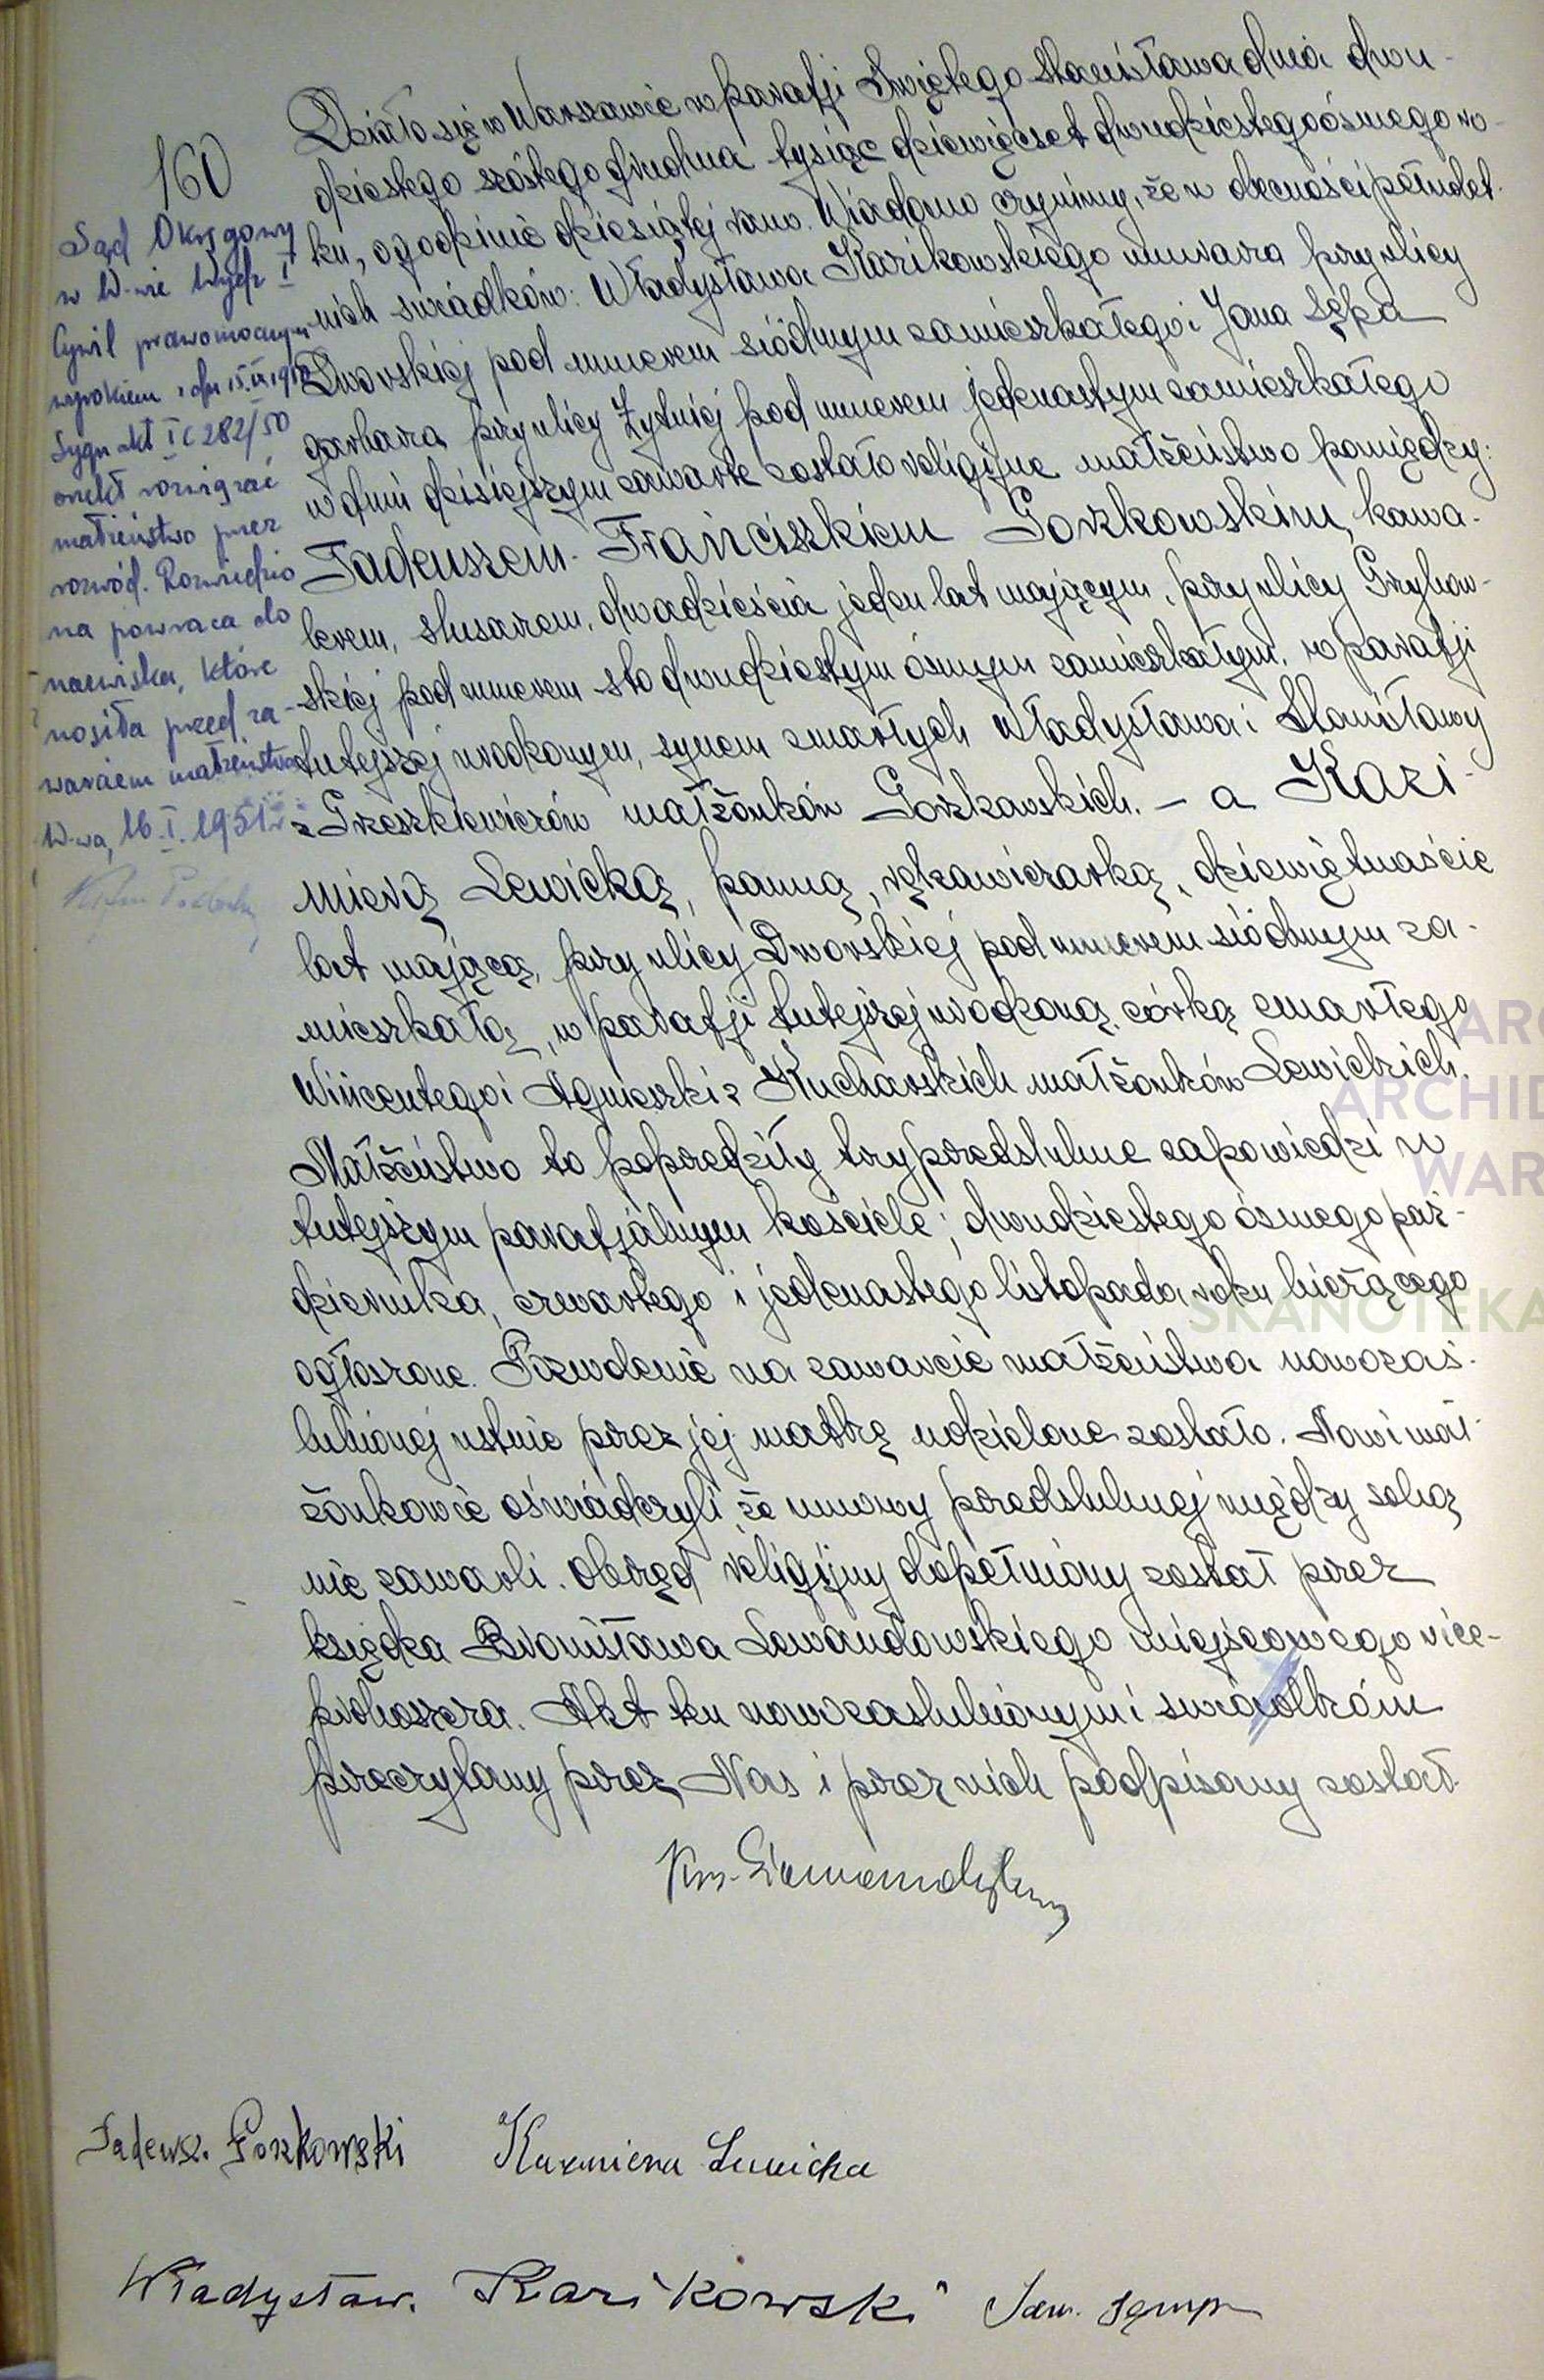 160
Sąd Okręgowy
w W-wie Wydz. I
Cywil prawomocnym
wyrokiem z dn 15.IX.1950
Sygn akt I C 282/50
orzekł rozwiązać
małżeństwo przez
rozwód. Rozwiedzio
na powraca do
nazwiska, które
nosiła przed za-
warciem małżeństwa
W-wa, 16.I.1951 r.
Działo się w Warszawie w parafji Świętego Stanisława dnia dwu-
dziestego szóstego grudnia tysiąc dziewięćset dwudziestego ósmego ro-
ku, o godzinie dziesiątej rano. Wiadomo czynimy, że w obecności pełnolet-
nich świadków: Władysława Karikowskiego murarza przy ulicy
Dworskiej pod numerem siódmym zamieszkałego i Jana Sępa
garbarza przy ulicy Żytniej pod numerem jedenastym zamieszkałego
w dniu dzisiejszym zawarte zostało religijne małżeństwo pomiędzy:
Tadeuszem-Franciszkiem Gorzkowskim, kawa-
lerem, ślusarem, dwadzieścia jeden lat mającym, przy ulicy Grzybow-
skiej pod numerem sto dwudziestym ósmym zamieszkałym, w parafji
tutejszej urodzonym, synem zmarłych Władysława i Stanisławy
z Grzeszkiewiczów małżonków Gorzkowskich. — a Kazi-
mierą Lewicką, panną, rękawiczarką, dziewiętnaście
lat mającą, przy ulicy Dworskiej pod numerem siódmym za-
mieszkałą, w parafji tutejszej urodzoną, córką zmarłego
Wincentego i Agnieszki z Kucharskich małżonków Lewickich.
Małżeństwo to poprzedziły trzy przedślubne zapowiedzi w
tutejszym parafjalnym kościele; dwudziestego ósmego paź-
dziernika, czwartego i jedenastego listopada roku bieżącego
ogłoszone. Pozwolenie na zawarcie małżeństwa nowozaś-
lubionej ustnie przez jej matkę udzielone zostało. Nowi mał-
żonkowie oświadczyli, że umowy przedślubnej między sobą
nie zawarli. Obrzęd religijny dopełniony został przez
księdza Bronisława Lewandowskiego miejscowego vice-
proboszcza. Akt ten nowozaślubionym i świadkom
przeczytany przez Nas i przez nich podpisany został.
Tadeusz. Gorzkowski Kazimiera Lewicka
Władysław. Karikowski Jan. Sęmp
ARCHID
WAR
SKANOTEKA